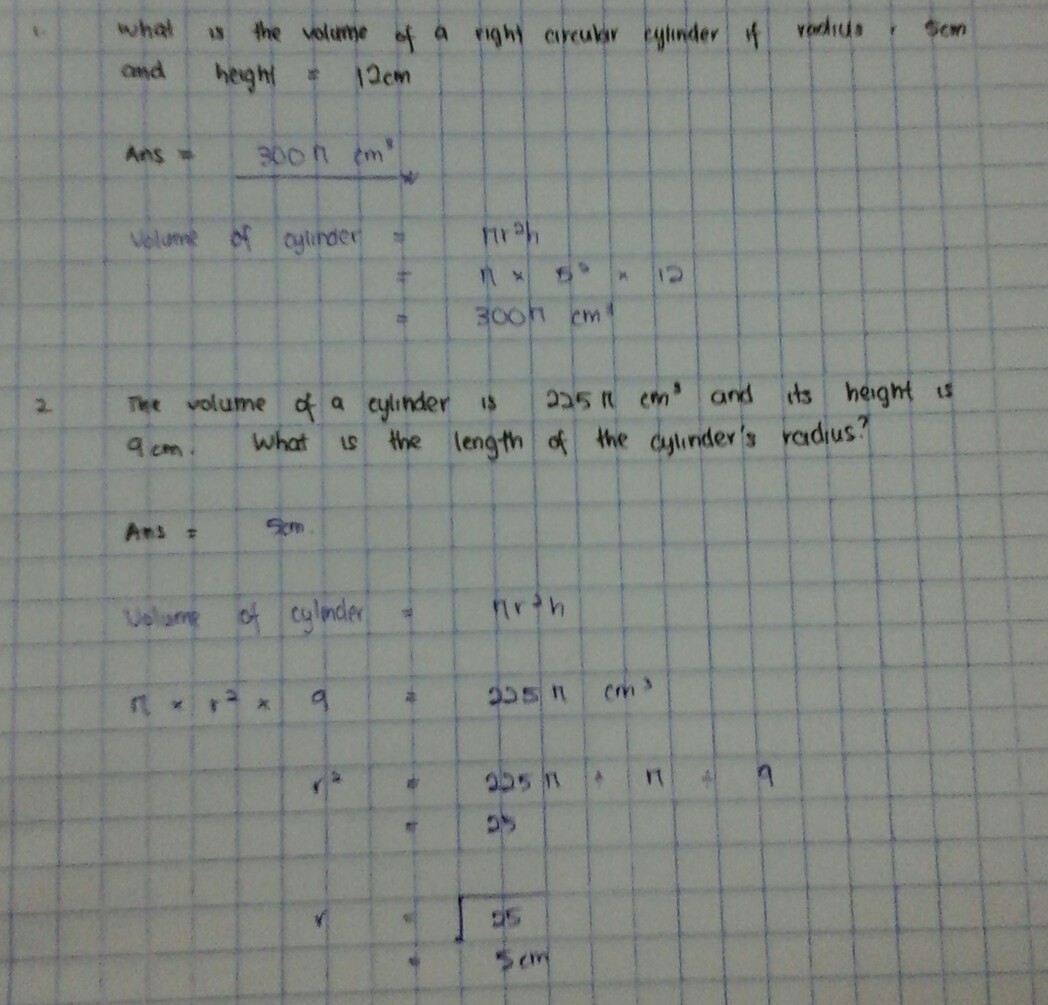 1. What is the volume of a right circular cylinder if radius = 5cm
and height = 12cm
Ans = 300π cm³
Volume of cylinder = πr²h
= π × 5² × 12
= 300π cm³
2 The volume of a cylinder is 225π cm³ and its height is
9cm. What is the length of the cylinder's radius?
Ans = 5cm.
Volume of cylinder = πr²h
π × r² × 9 = 225π cm³
r² = 225π ÷ π ÷ 9
= 25
r = √25
= 5cm